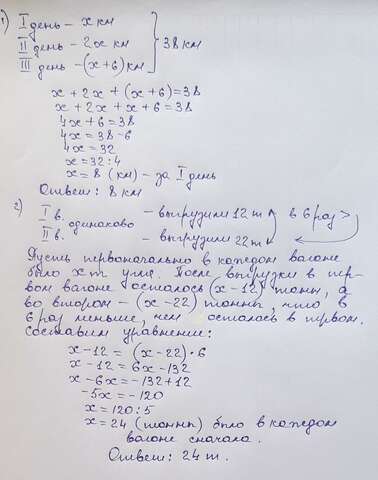 1) I день – x км
II день – 2x км } 38 км
III день – (x+6) км
x + 2x + (x+6) = 38
x + 2x + x + 6 = 38
4x + 6 = 38
4x = 38 - 6
4x = 32
x = 32 : 4
x = 8 (км) – за I день
Ответ: 8 км
2) I в. – выгрузили 12 т в 6 раз >
одинаково
II в. – выгрузили 22 т
Пусть первоначально в каждом вагоне
было x т угля. После выгрузки в пер-
вом вагоне осталось (x-12) тонн, а
во втором – (x-22) тонны, что в
6 раз меньше, чем осталось в первом.
Составим уравнение:
x - 12 = (x - 22) · 6
x - 12 = 6x - 132
x - 6x = -132 + 12
-5x = -120
x = 120 : 5
x = 24 (тонны) было в каждом
вагоне сначала.
Ответ: 24 т.